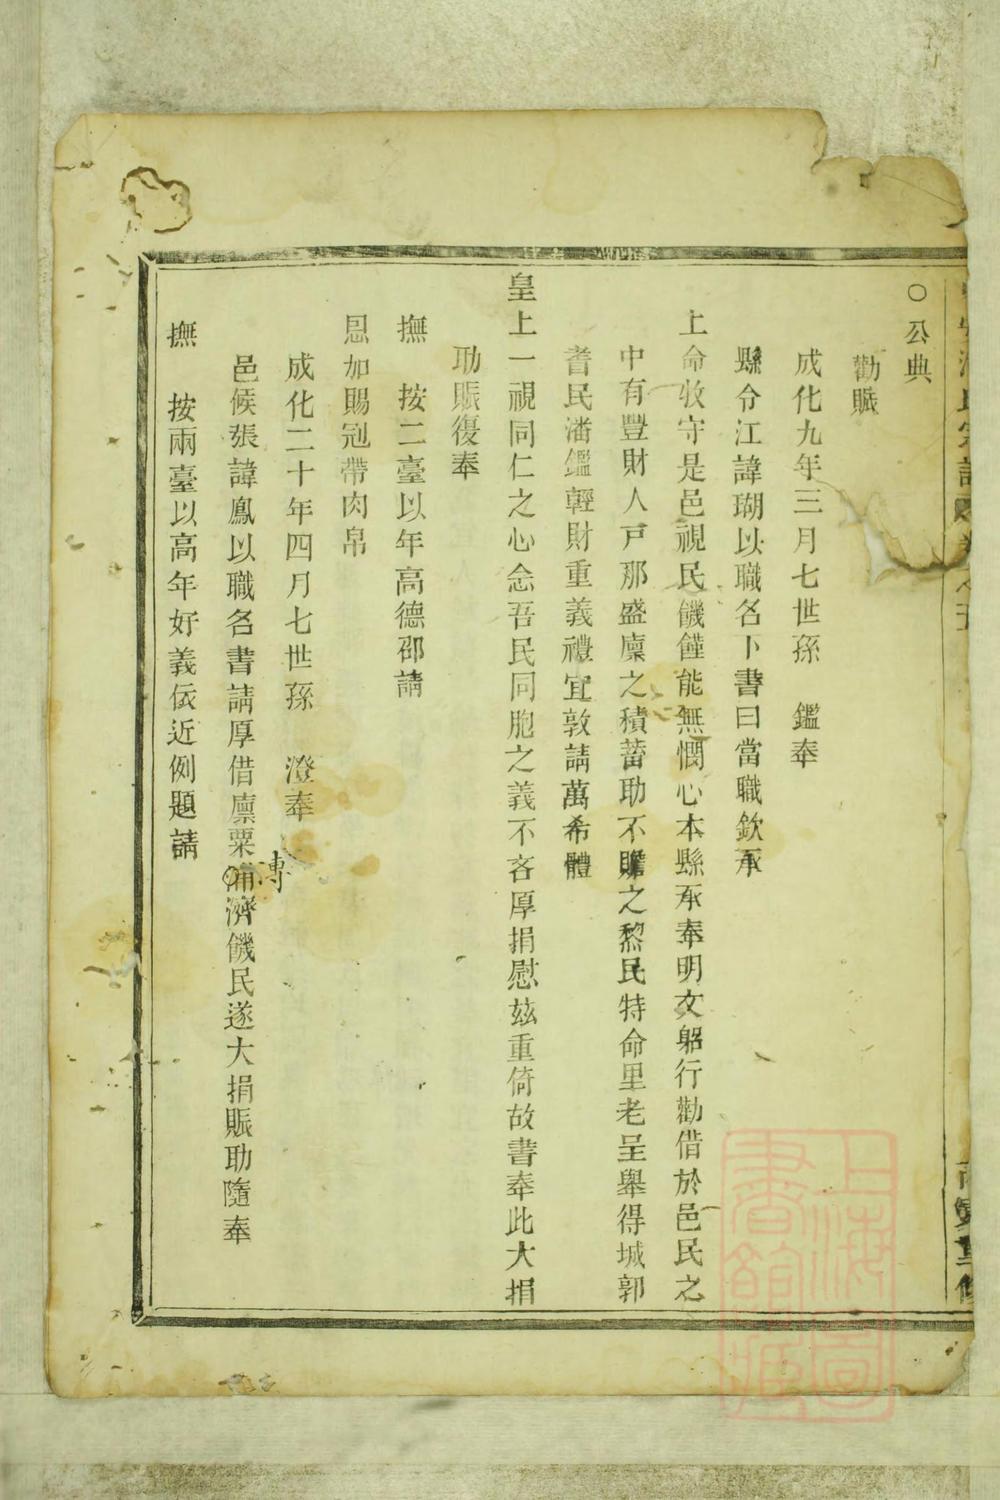 ○公典
勸賑
成化九年三月七世孫 鑑奉
縣令江諱瑚以職名卜書曰當職欽承
上命收守是邑視民饑饉能無憫心本縣承奉明文躬行勸借於邑民之
中有豐財人戸那盛廩之積蓄助不贍之黎民特命里老呈舉得城郭
耆民潘鑑輕財重義禮宜敦請萬希體
皇上一視同仁之心念吾民同胞之義不吝厚捐慰茲重倚故書奉此大捐
助賑復奉
撫 按二臺以年高德邵請
恩加賜冠帶肉帛
成化二十年四月七世孫 澄奉
邑候張諱鳳以職名書請厚借廩粟溥濟饑民遂大捐賑助隨奉
撫 按兩臺以高年好義依近例題請
上海圖書館藏